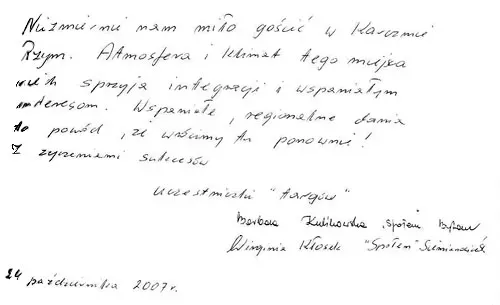 Niezmiernie nam miło gościć w Karczmie
Rzym. Atmosfera i klimat tego miejsca
sprzyja integracji i wspaniałym
interesom. Wspaniałe, regionalne dania
to powód, że wrócimy tu ponownie!
Z życzeniami sukcesów
uczestniczki "targów"
Barbara Kulikowska "Społem" Bytom
Virginia Kłosek "Społem" Siemianowice
24 października 2007 r.